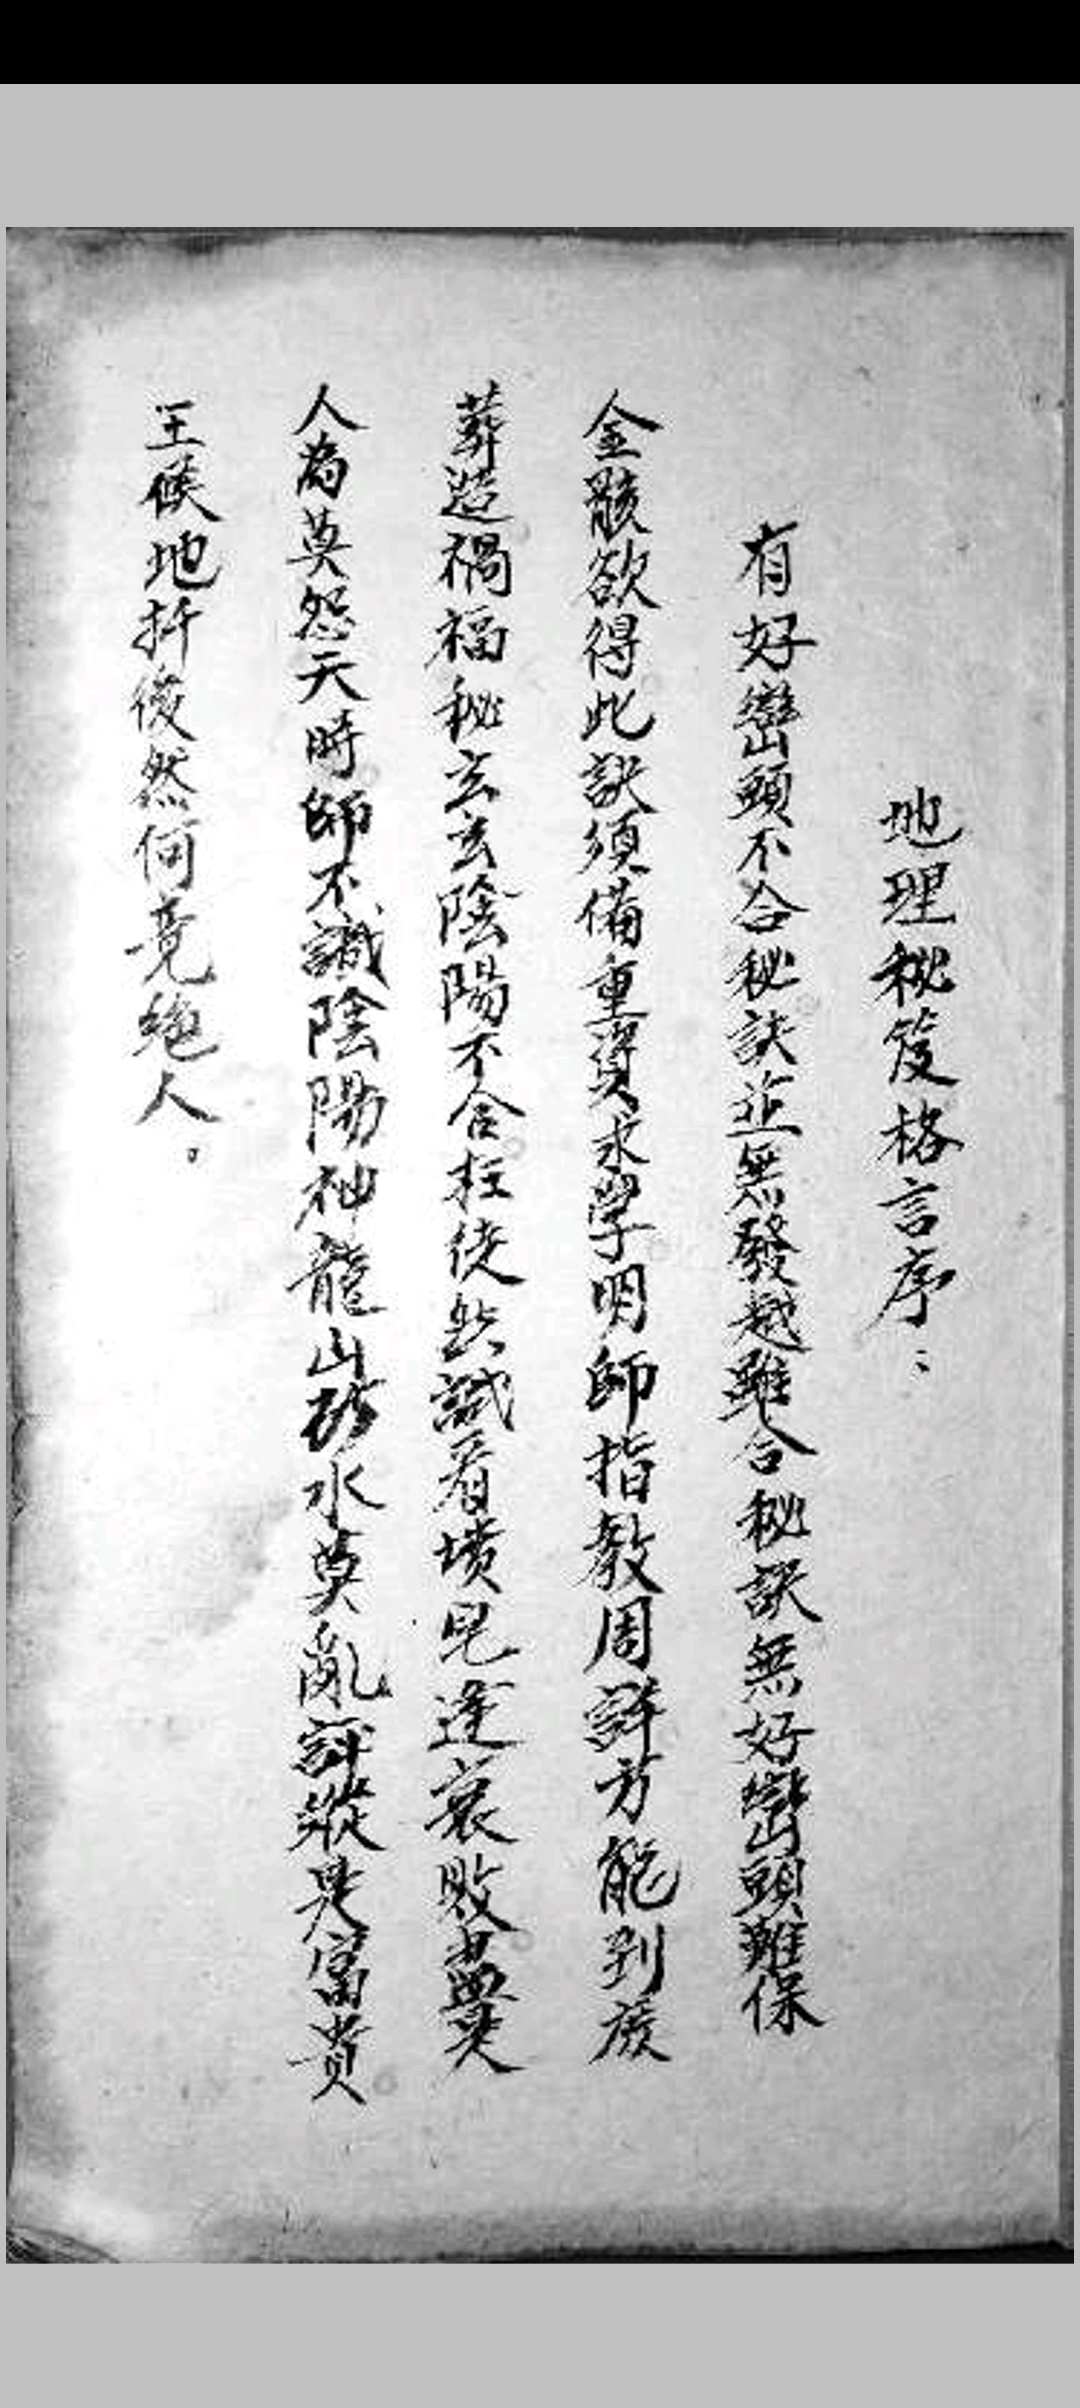 地理秘笈格言序：
有好巒頭不合秘訣並無發越雖合秘訣無好巒頭難保
金骸欲得此訣須備重資求學明師指教周詳方能到處
葬造禍福秘玄玄陰陽不合枉徒然誠看墳兒逢衰敗盡
人為莫怨天時師不識陰陽神龍山砂水莫亂評縱是富貴
王侯地扦後然何竟絕人。